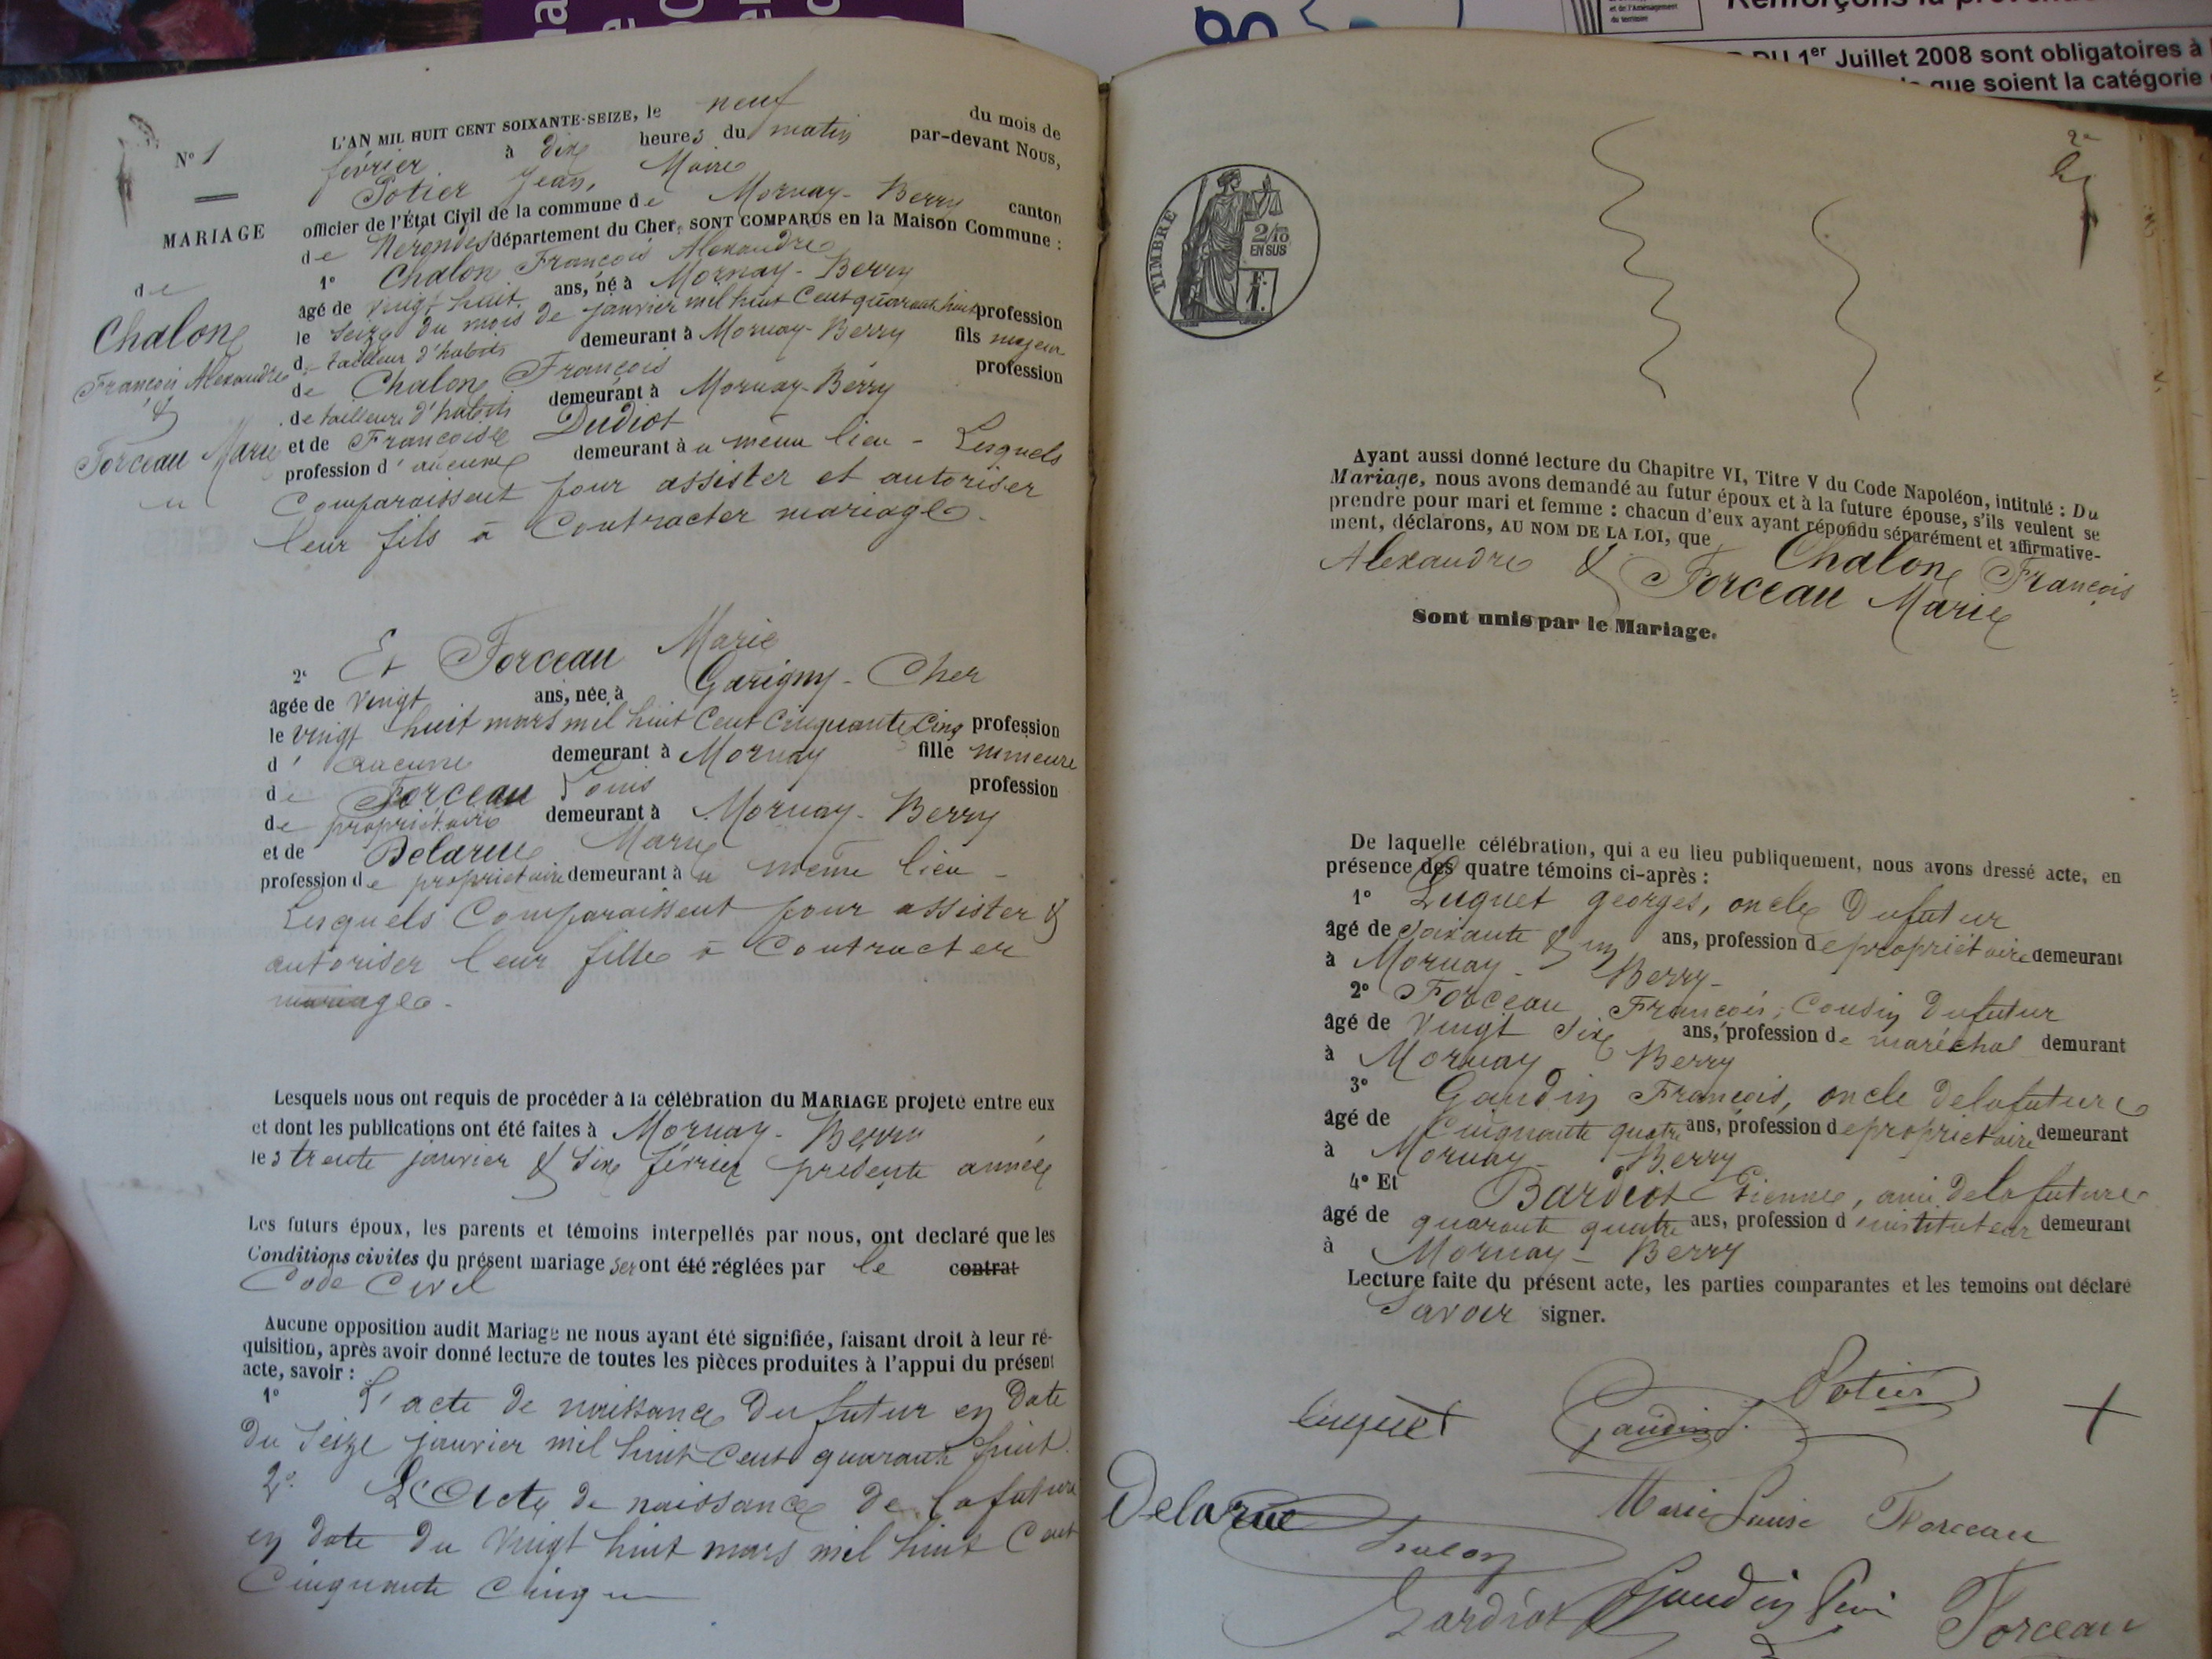 et de l'Aménagement
du territoire
1er Juillet 2008 sont obligatoires à
que soient la catégorie
N° 1
MARIAGE
de
Chalon
François Alexandre
&
Forceau Marie
L'AN MIL HUIT CENT SOIXANTE-SEIZE, le neuf du mois de
février à dix heures du matin par-devant Nous,
Potier Jean, Maire
officier de l'État Civil de la commune de Mornay-Berry canton
de Nérondes département du Cher, SONT COMPARUS en la Maison Commune :
1° Chalon François Alexandre
âgé de vingt huit ans, né à Mornay-Berry
le seize du mois de janvier mil huit cent quarante huit profession
de tailleur d'habits demeurant à Mornay-Berry fils majeur
de Chalon François profession
de tailleur d'habits demeurant à Mornay-Berry
et de Françoise Dudiot
profession d'aucune demeurant à u même lieu - Lesquels
comparaissent pour assister et autoriser
leur fils à contracter mariage.
2° Et Forceau Marie
âgée de vingt ans, née à Garigny - Cher
le vingt huit mars mil huit cent cinquante cinq profession
d'aucune demeurant à Mornay fille mineure
de Forceau Louis profession
de propriétaire demeurant à Mornay-Berry
et de Delarue Marie
profession de propriétaire demeurant à u même lieu -
Lesquels comparaissent pour assister &
autoriser leur fille à contracter
mariage.
Lesquels nous ont requis de procéder à la célébration du MARIAGE projeté entre eux
et dont les publications ont été faites à Mornay-Berry,
les trente janvier & six février présente année
Les futurs époux, les parents et témoins interpellés par nous, ont declaré que les
Conditions civiles du présent mariage seront été réglées par le contrat
Code Civil
Aucune opposition audit Mariage ne nous ayant été signifiée, faisant droit à leur ré-
quisition, après avoir donné lecture de toutes les pièces produites à l'appui du présent
acte, savoir :
1° L'acte de naissance du futur en date
du seize janvier mil huit cent quarante huit.
2° L'Acte de naissance de la future
en date du vingt huit mars mil huit cent
cinquante cinq
TIMBRE
2/10
EN SUS
Ayant aussi donné lecture du Chapitre VI, Titre V du Code Napoléon, intitulé : Du
Mariage, nous avons demandé au futur époux et à la future épouse, s'ils veulent se
prendre pour mari et femme : chacun d'eux ayant répondu séparément et affirmative-
ment, déclarons, AU NOM DE LA LOI, que Chalon François
Alexandre & Forceau Marie
Sont unis par le Mariage.
De laquelle célébration, qui a eu lieu publiquement, nous avons dressé acte, en
présence des quatre témoins ci-après :
1° Luguet Georges, oncle du futur
âgé de soixante & un ans, profession de propriétaire demeurant
à Mornay-Berry -
2° Forceau François, cousin du futur
âgé de vingt six ans, profession de maréchal demurant
à Mornay Berry
3° Gaudin François, oncle de la future
âgé de cinquante quatre ans, profession de propriétaire demeurant
à Mornay-Berry
4° Et Bardiot Etienne, ami de la future
âgé de quarante quatre ans, profession d'instituteur demeurant
à Mornay-Berry
Lecture faite du présent acte, les parties comparantes et les temoins ont déclaré
savoir signer.
Potier
Luguet Gaudin
Delarue Marie Louise Forceau
Chalon
Bardiot Gaudin Forceau